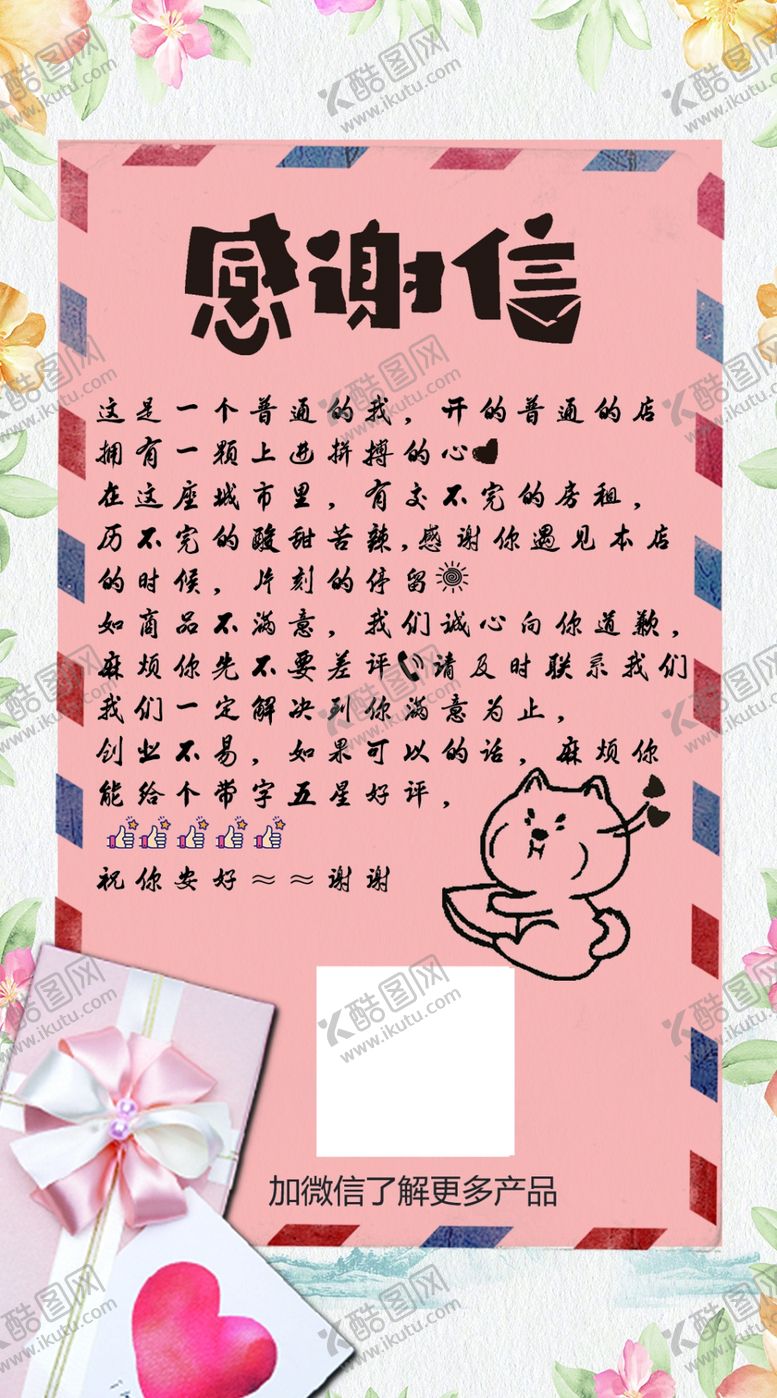 感谢信
这是一个普通的我，开的普通的店
拥有一颗上进拼搏的心
在这座城市里，有交不完的房租，
历不完的酸甜苦辣，感谢你遇见本店
的时候，片刻的停留
如商品不满意，我们诚心向你道歉，
麻烦你先不要差评 请及时联系我们
我们一定解决到你满意为止，
创业不易，如果可以的话，麻烦你
能给个带字五星好评，
祝你安好≈≈谢谢
加微信了解更多产品
酷图网
www.ikutu.com